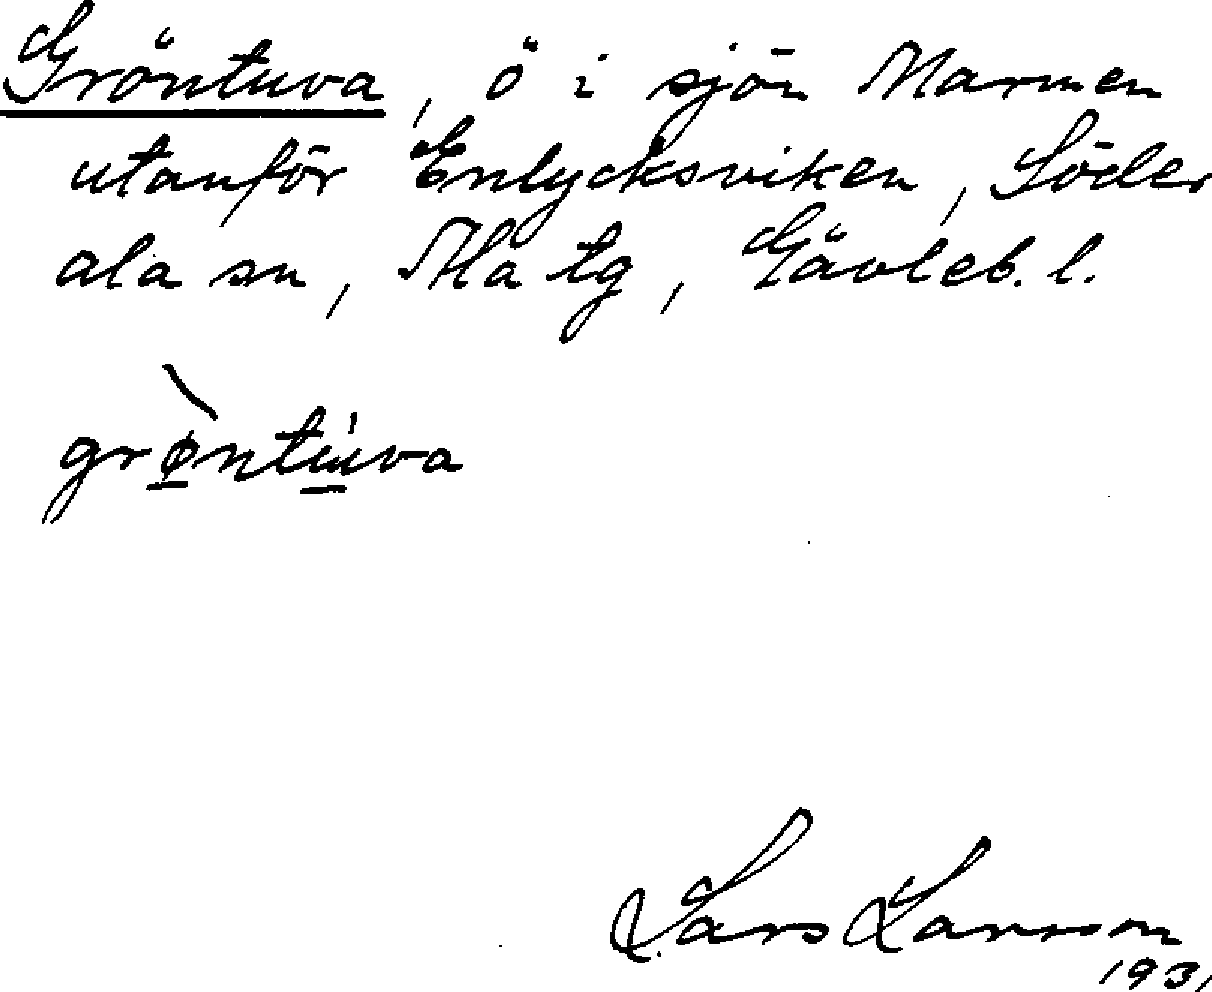 Gröntuva, ö i sjön Marmen
utanför Enlycksviken, Söder
ala sn, Ala tg, Gävleb. l.
grøntu̇va
Lars Larsson
1931